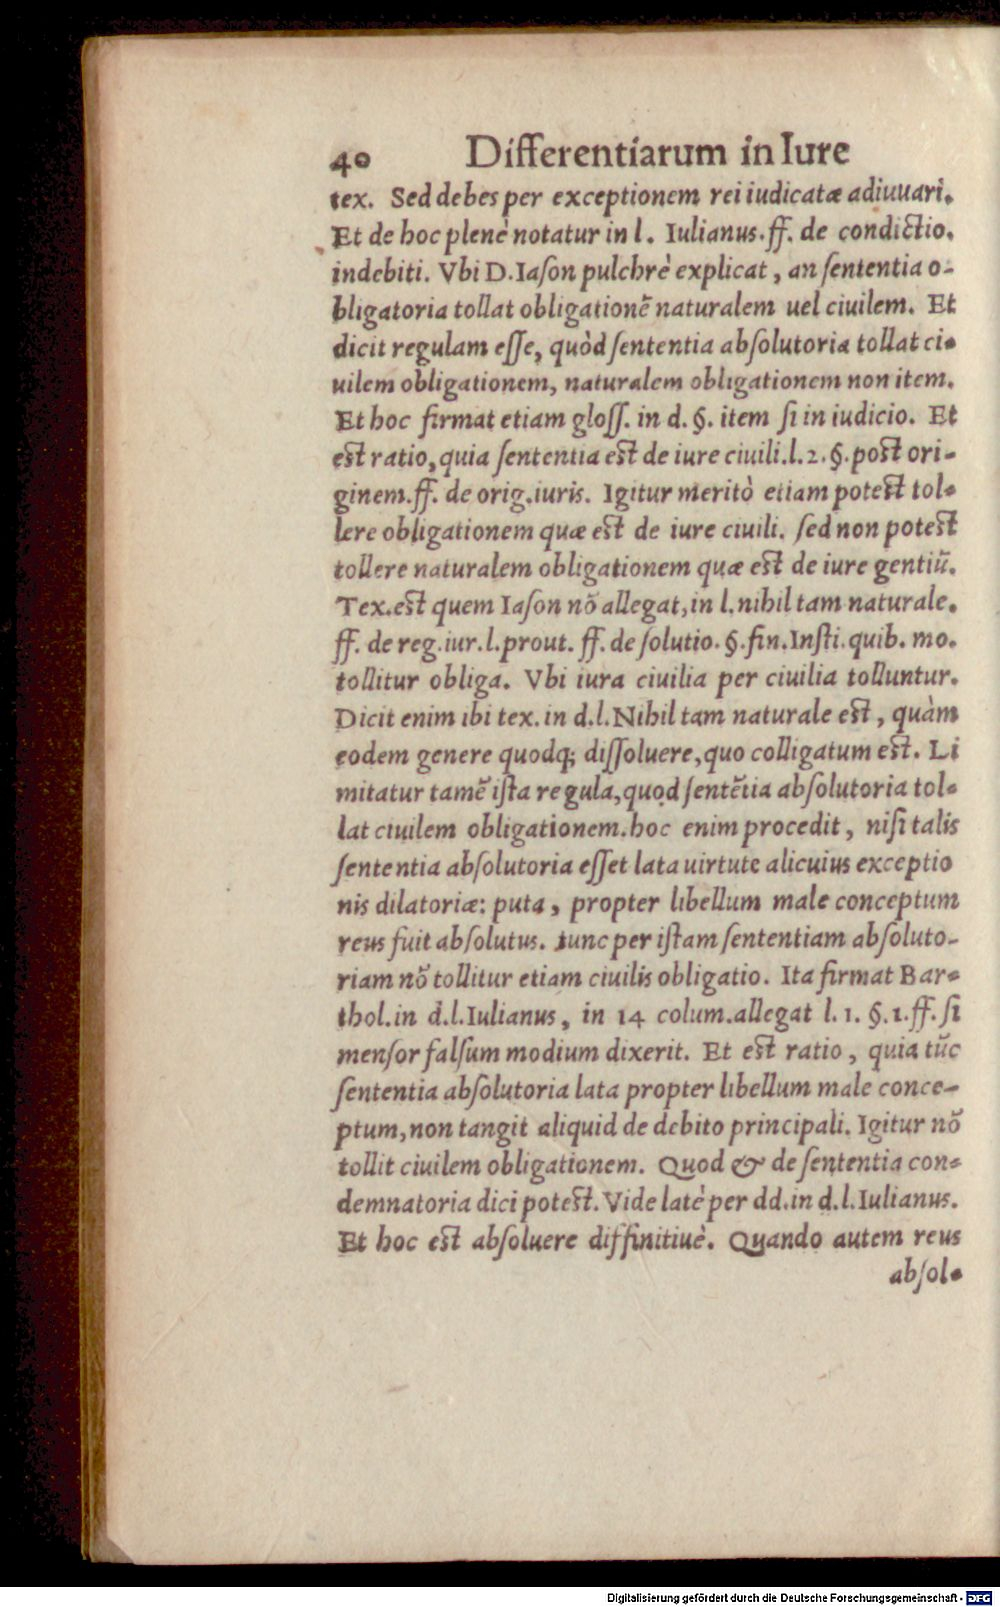 40 Differentiarum in Iure
tex. Sed debes per exceptionem rei iudicatæ adiuuari.
Et de hoc plenè notatur in l. Iulianus.ff. de condictio.
indebiti. Vbi D.Iaſon pulchrè explicat, an ſententia o-
bligatoria tollat obligationẽ naturalem uel ciuilem. Et
dicit regulam eſſe, quòd ſententia abſolutoria tollat ci-
uilem obligationem, naturalem obligationem non item.
Et hoc firmat etiam gloſſ. in d. §. item ſi in iudicio. Et
est ratio, quia ſententia est de iure ciuili.l.2.§.post ori-
ginem.ff. de orig.iuris. Igitur meritò etiam potest tol-
lere obligationem quæ est de iure ciuili. ſed non potest
tollere naturalem obligationem quæ est de iure gentiũ.
Tex.est quem Iaſon nõ allegat, in l.nihil tam naturale.
ff. de reg.iur.l.prout. ff. de ſolutio. §.fin.Inſti.quib. mo.
tollitur obliga. Vbi iura ciuilia per ciuilia tolluntur.
Dicit enim ibi tex. in d.l.Nihil tam naturale est, quàm
eodem genere quodq; diſſoluere, quo colligatum est. Li
mitatur tamẽ iſta regula, quod ſentẽtia abſolutoria tol-
lat ciuilem obligationem.hoc enim procedit, niſi talis
ſententia abſolutoria eſſet lata uirtute alicuius exceptio
nis dilatoriæ: puta, propter libellum male conceptum
reus fuit abſolutus. tunc per iſtam ſententiam abſoluto-
riam nõ tollitur etiam ciuilis obligatio. Ita firmat Bar-
thol.in d.l.Iulianus, in 14 colum.allegat l. 1. §.1.ff. ſi
menſor falſum modium dixerit. Et est ratio, quia tũc
ſententia abſolutoria lata propter libellum male conce-
ptum, non tangit aliquid de debito principali. Igitur nõ
tollit ciuilem obligationem. Quod & de ſententia con-
demnatoria dici potest. Vide latè per dd.in d.l.Iulianus.
Et hoc est abſoluere diffinitiuè. Quando autem reus
abſol-
Digitalisierung gefördert durch die Deutsche Forschungsgemeinschaft - DFG